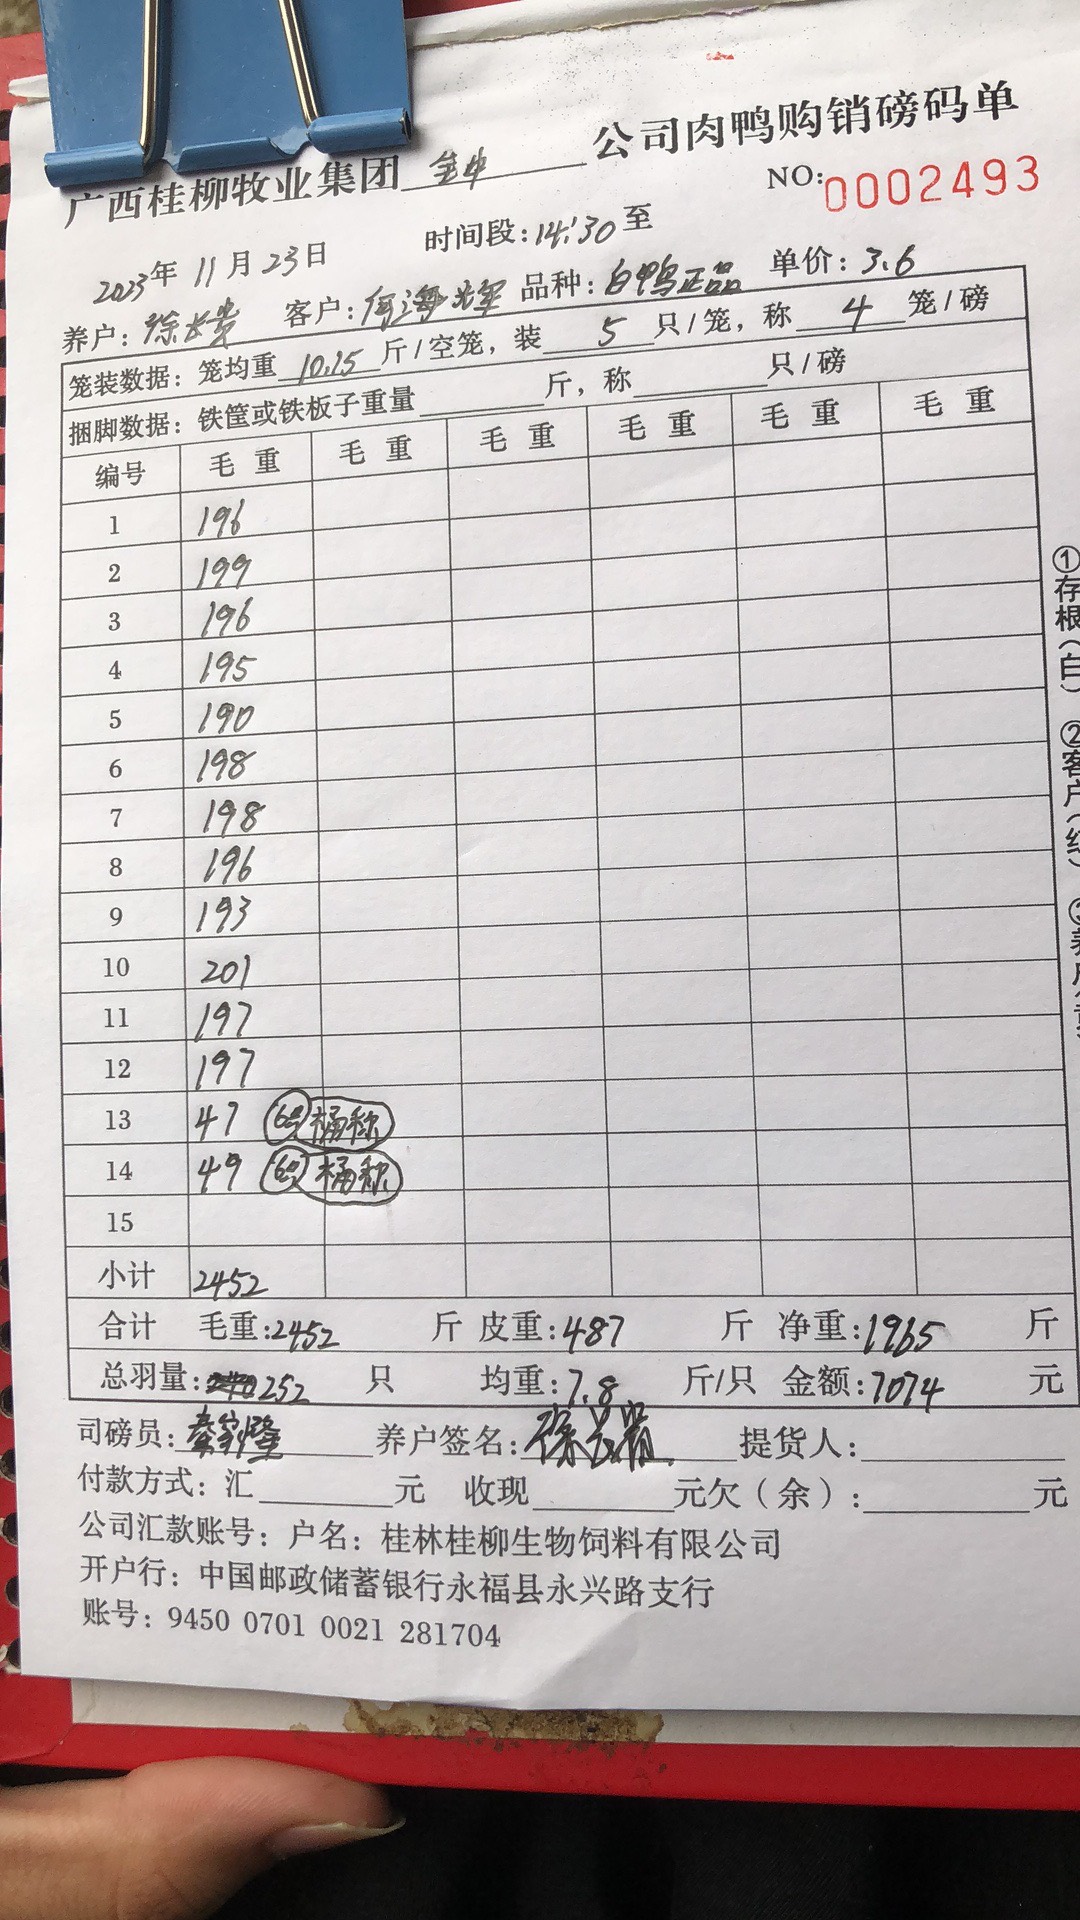 广西桂柳牧业集团 全州 公司肉鸭购销磅码单
NO:0002493
2023年 11月 23日 时间段:14:30至
养户:徐长贵 客户:何海辉 品种:白鸭正品 单价:3.6
笼装数据:笼均重 10.15 斤/空笼,装 5 只/笼,称 4 笼/磅
捆脚数据:铁筐或铁板子重量 斤,称 只/磅
编号 毛重 毛重 毛重 毛重 毛重 毛重
1 196
2 199
3 196
4 195
5 190
6 198
7 198
8 196
9 193
10 201
11 197
12 197
13 47 6只 桶称
14 49 6只 桶称
15
小计 2452
合计 毛重:2452 斤 皮重:487 斤 净重:1965 斤
总羽量:252 只 均重:7.8 斤/只 金额:7074 元
司磅员: 养户签名:徐长贵 提货人:
付款方式:汇 元 收现 元欠(余): 元
公司汇款账号:户名:桂林桂柳生物饲料有限公司
开户行:中国邮政储蓄银行永福县永兴路支行
账号:9450 0701 0021 281704
①存根(白) ②客户(红)